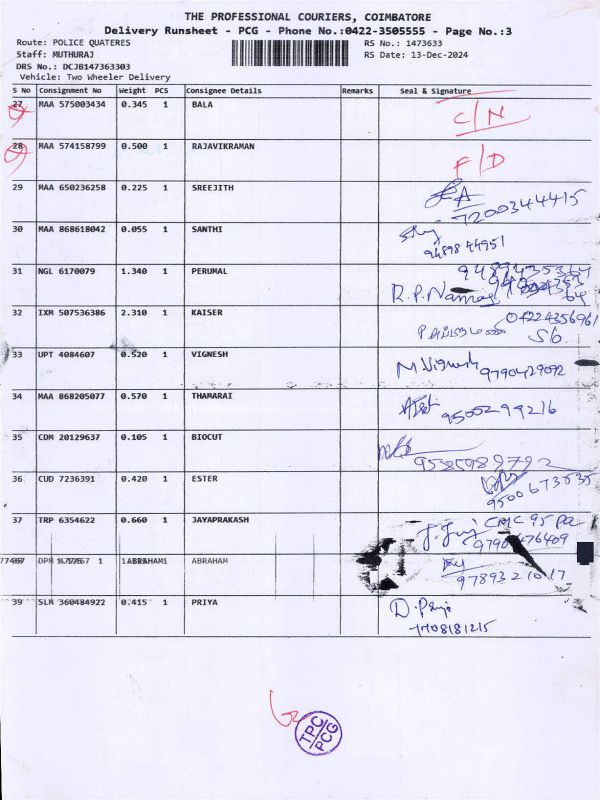 THE PROFESSIONAL COURIERS, COIMBATORE
Delivery Runsheet - PCG - Phone No.:0422-3505555 - Page No.:3
Route: POLICE QUATERES RS No.: 1473633
Staff: MUTHURAJ RS Date: 13-Dec-2024
DRS No.: DCJB147363303
Vehicle: Two Wheeler Delivery
S No Consignment No Weight PCS Consignee Details Remarks Seal & Signature
27 MAA 575003434 0.345 1 BALA C/N
28 MAA 574158799 0.500 1 RAJAVIKRAMAN F/D
29 MAA 650236258 0.225 1 SREEJITH 7200344415
30 MAA 868618042 0.055 1 SANTHI
31 NGL 6170079 1.340 1 PERUMAL
32 IXM 507536386 2.310 1 KAISER
33 UPT 4084607 0.520 1 VIGNESH M Vignesh 9790429092
34 MAA 868205077 0.570 1 THAMARAI 9500299216
35 CDM 20129637 0.105 1 BIOCUT
36 CUD 7236391 0.420 1 ESTER 9500673535
37 TRP 6354622 0.660 1 JAYAPRAKASH
ABRAHAM 9789321017
39 SLM 360484922 0.415 1 PRIYA D. Priya
7708181215
TPC/PCG